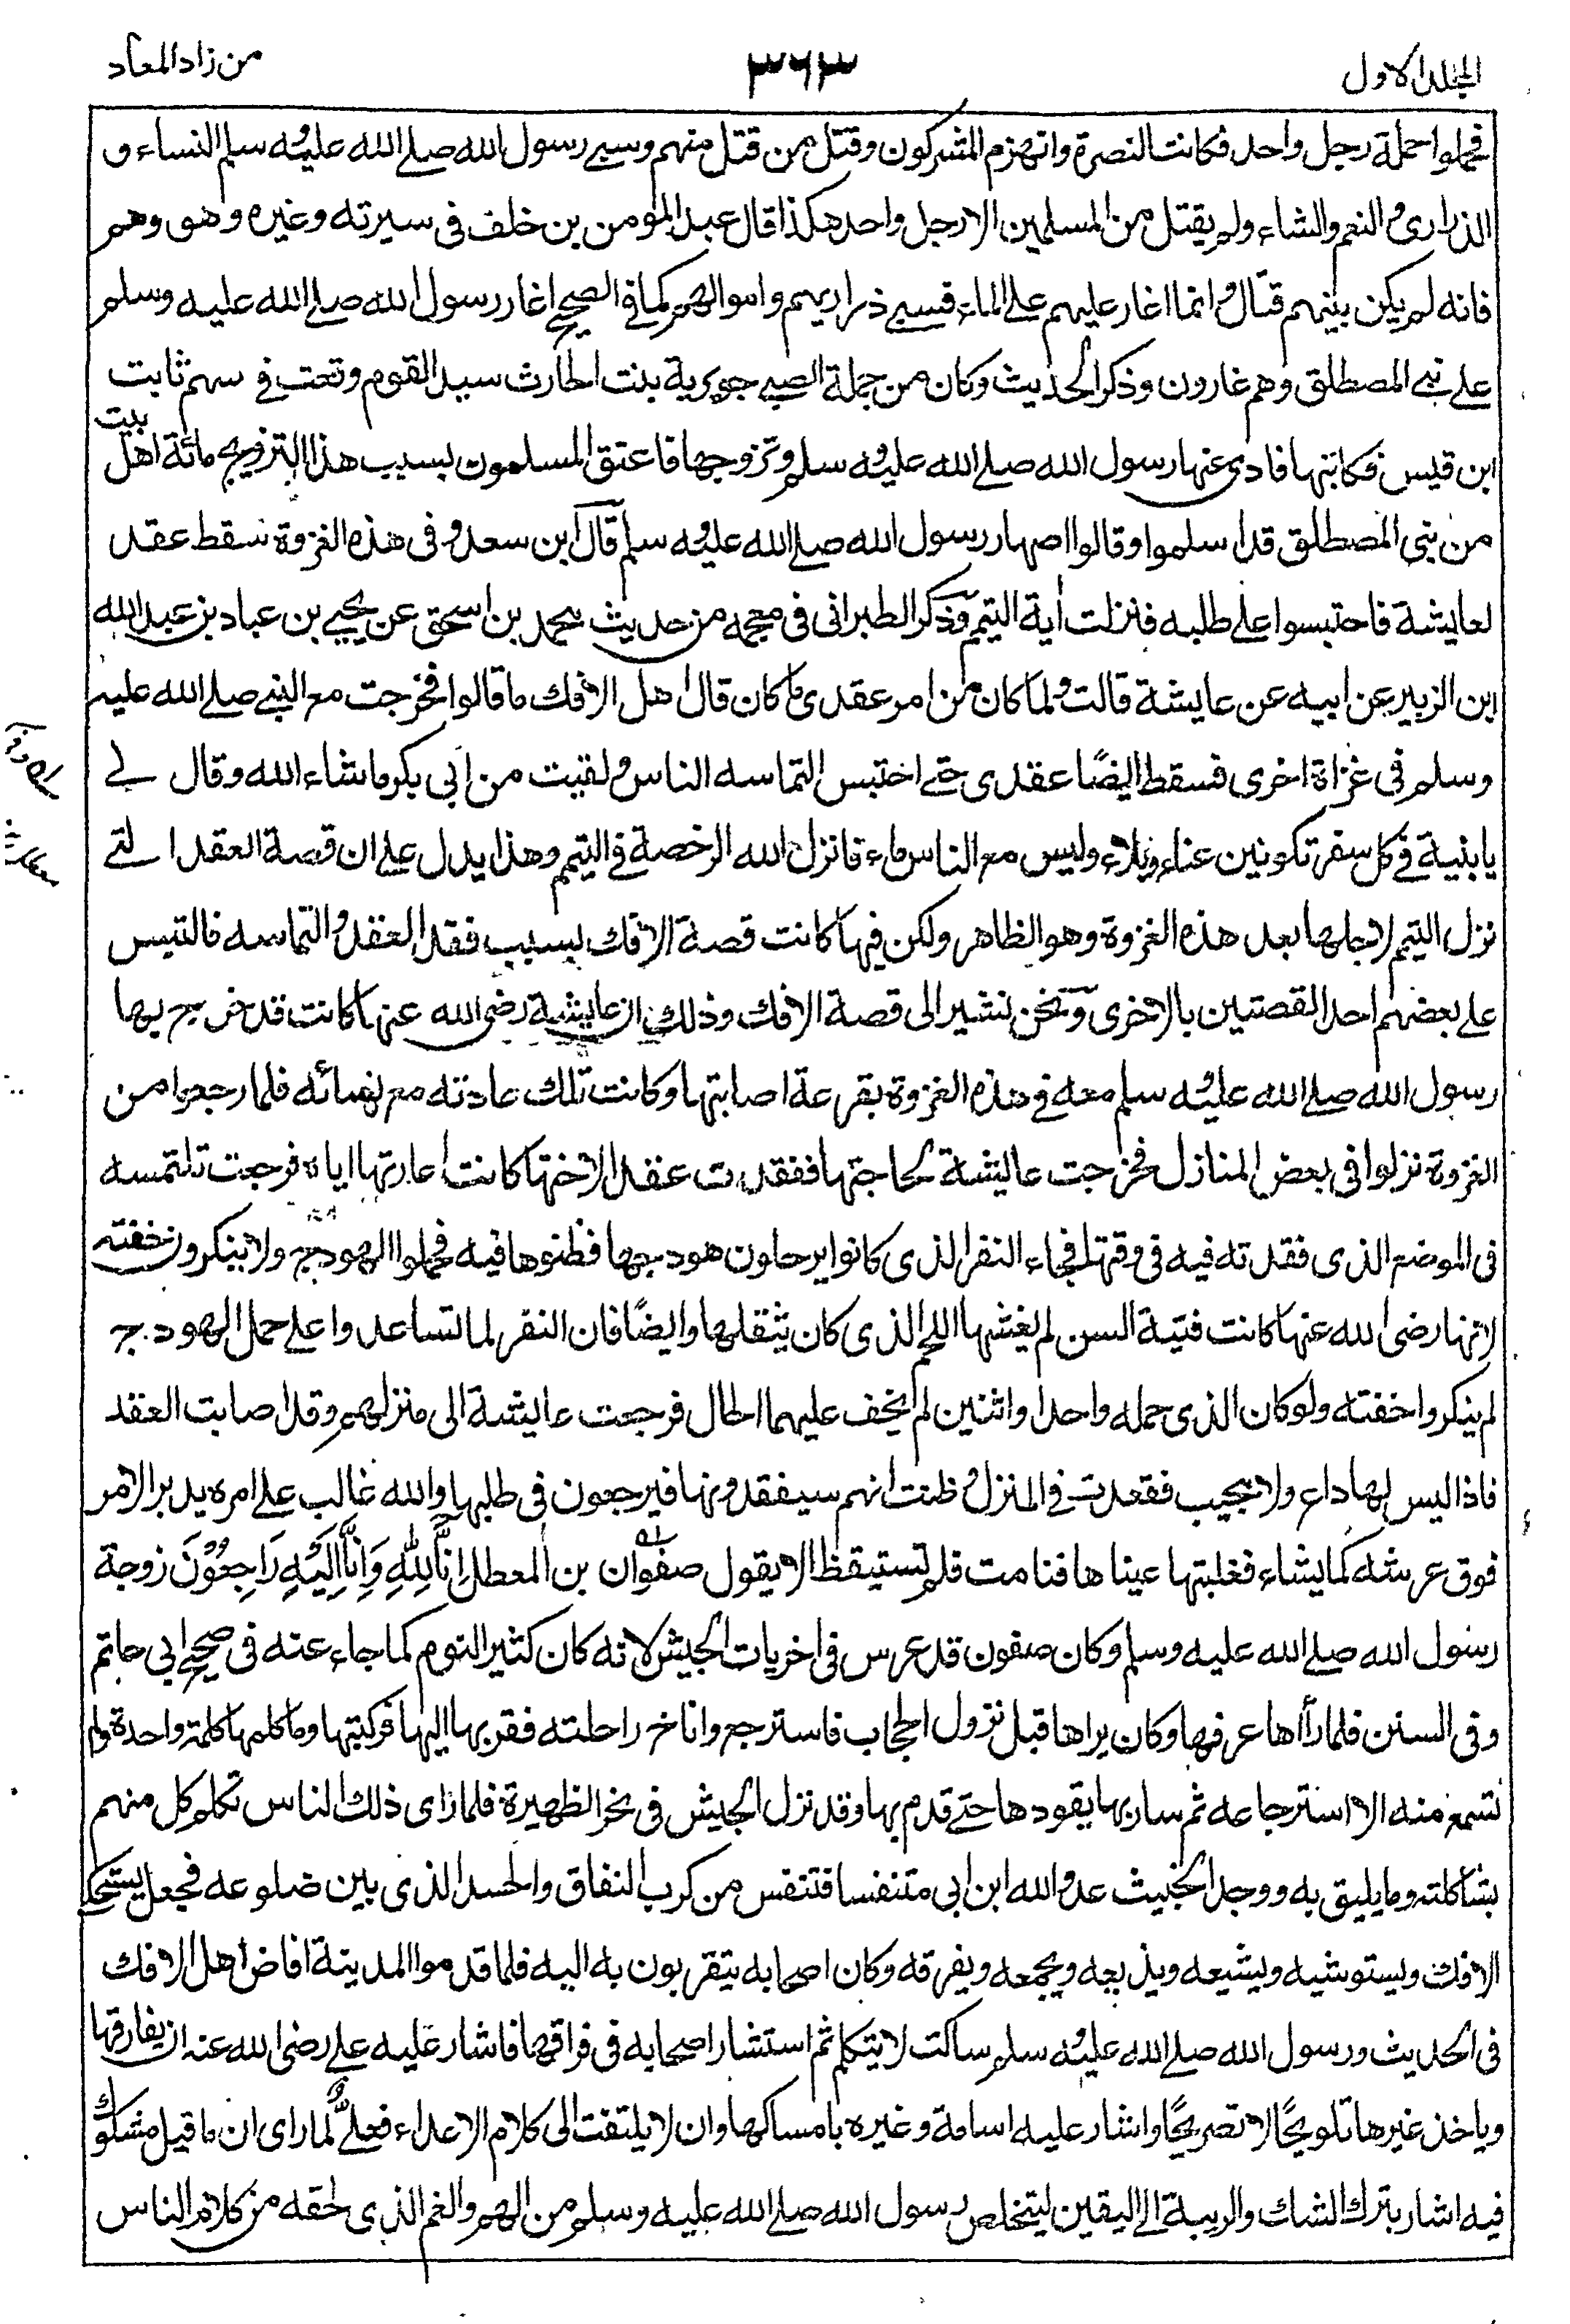 الجلد الاول
٣٦٣
من زاد المعاد
فحملوا حملة رجل واحد فكانت النصرة وانهزم المشركون وقتل من قتل منهم وسبى رسول الله صلى الله عليه وسلم النساء و
الذرارى والنعم والشاء ولم يقتل من المسلمين الا رجل واحد هكذا قال عبد المؤمن بن خلف فى سيرته وغيره وهو وهم
فانه لم يكن بينهم قتال وانما اغار عليهم على الماء فسبى ذراريهم واموالهم كما فى الصحيح اغار رسول الله صلى الله عليه وسلم
على بنى المصطلق وهم غارون وذكر الحديث وكان من جملة السبى جويرية بنت الحارث سيد القوم وقعت فى سهم ثابت
ابن قيس فكاتبها فادى عنها رسول الله صلى الله عليه وسلم وتزوجها فاعتق المسلمون بسبب هذا التزويج مائة اهل بيت
من بنى المصطلق قد اسلموا وقالوا اصهار رسول الله صلى الله عليه وسلم قال ابن سعد وفى هذه الغزوة سقط عقد
لعايشة فاحتبسوا على طلبه فنزلت أية التيمم وذكر الطبرانى فى معجمه من حديث محمد بن اسحق عن يحيى بن عباد بن عبد الله
ابن الزبير عن ابيه عن عايشة قالت ولما كان من امر عقدى ما كان قال اهل الافك ما قالوا فخرجت مع النبى صلى الله عليه
وسلم فى غزاة اخرى فسقط ايضًا عقدى حتى احتبس التماسه الناس ولقيت من ابى بكر ما شاء الله وقال لى
يا بنية فى كل سفر تكونين عناء وبلاء وليس مع الناس ماء فانزل الله الرخصة فى التيمم وهذا يدل على ان قصة العقد التى
نزل التيمم لاجلها بعد هذه الغزوة وهو الظاهر ولكن فيها كانت قصة الافك بسبب فقد العقد والتماسه فالتبس
على بعضهم احد القصتين بالاخرى ونحن نشير الى قصة الافك وذلك ان عايشة رضى الله عنها كانت قد خرج بها
رسول الله صلى الله عليه وسلم معه فى هذه الغزوة بقرعة اصابتها وكانت تلك عادته مع نسائه فلما رجعوا من
الغزوة نزلوا فى بعض المنازل فخرجت عايشة لحاجتها ففقدت عقدا لاختها كانت اعارتها اياه فرجعت تلتمسه
فى الموضع الذى فقدته فيه فى وقتها فجاء النفر الذى كانوا يرحلون هودجها فظنوها فيه فحملوا الهودج ولا ينكرون خفته
لانها رضى الله عنها كانت فتية السن لم يغشها اللحم الذى كان يثقلها وايضًا فان النفر لما تساعدوا على حمل الهودج
لم ينكروا خفته ولو كان الذى حمله واحدا واثنين لم يخف عليهما الحال فرجعت عايشة الى منزلهم وقد اصابت العقد
فاذا ليس لها داع ولا مجيب فقعدت فى المنزل وظنت انهم سيفقدونها فيرجعون فى طلبها والله غالب على امره يدبر الامر
فوق عرشه كما يشاء فغلبتها عيناها فنامت فلم تستيقظ الا بقول صفوان بن المعطل اِنَّا لِلّٰهِ وَاِنَّا اِلَيْهِ رَاجِعُوْنَ زوجة
رسول الله صلى الله عليه وسلم وكان صفون قد عرس فى اخريات الجيش لانه كان كثير النوم كما جاء عنه فى صحيح ابى حاتم
وفى السنن فلما رأاها عرفها وكان يراها قبل نزول الحجاب فاسترجع واناخ راحلته فقربها اليها فركبتها وما كلمها كلمة واحدة ولم
تسمع منه الا استرجاعه ثم سار بها يقودها حتى قدم بها وقد نزل الجيش فى نحر الظهيرة فلما رأى ذلك الناس تكلم كل منهم
بشاكلته وما يليق به ووجد الخبيث عدو الله ابن ابى متنفسا فتنفس من كرب النفاق والحسد الذى بين ضلوعه فجعل يستحكى
الافك ويستوشيه ويشيعه ويذيعه ويجمعه ويفرقه وكان اصحابه يتقربون به اليه فلما قدموا المدينة افاض اهل الافك
فى الحديث ورسول الله صلى الله عليه وسلم ساكت لا يتكلم ثم استشار اصحابه فى فراقها فاشار عليه على رضى الله عنه ان يفارقها
وياخذ غيرها تلويحًا لا تصريحًا واشار عليه اسامة وغيره بامساكها وان لا يلتفت الى كلام الاعداء فعلىٌّ لما راى ان ما قيل مشكوك
فيه اشار بترك الشك والريبة الى اليقين ليتخلص رسول الله صلى الله عليه وسلم من الهم والغم الذى لحقه من كلام الناس